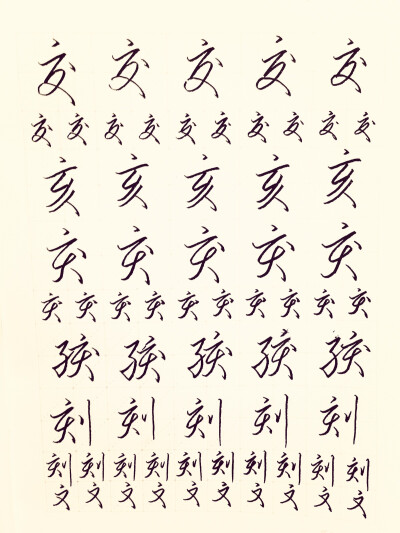 交交交交交
交交交交交交交交交交
亥亥亥亥亥
亥亥亥亥亥
亥亥亥亥亥亥亥亥亥亥
孩孩孩孩孩
刻刻刻刻刻
刻刻刻刻刻刻刻刻刻刻
文文文文文文文文文文